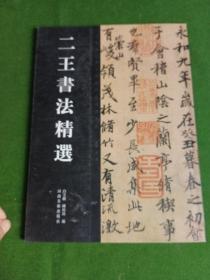 永和九年歲在癸丑暮春之初會
于會稽山陰之蘭亭脩稧事
也羣賢畢至少長咸集此地
崇山
有峻領茂林脩竹又有清流激
二王書法精選
河南美術出版社